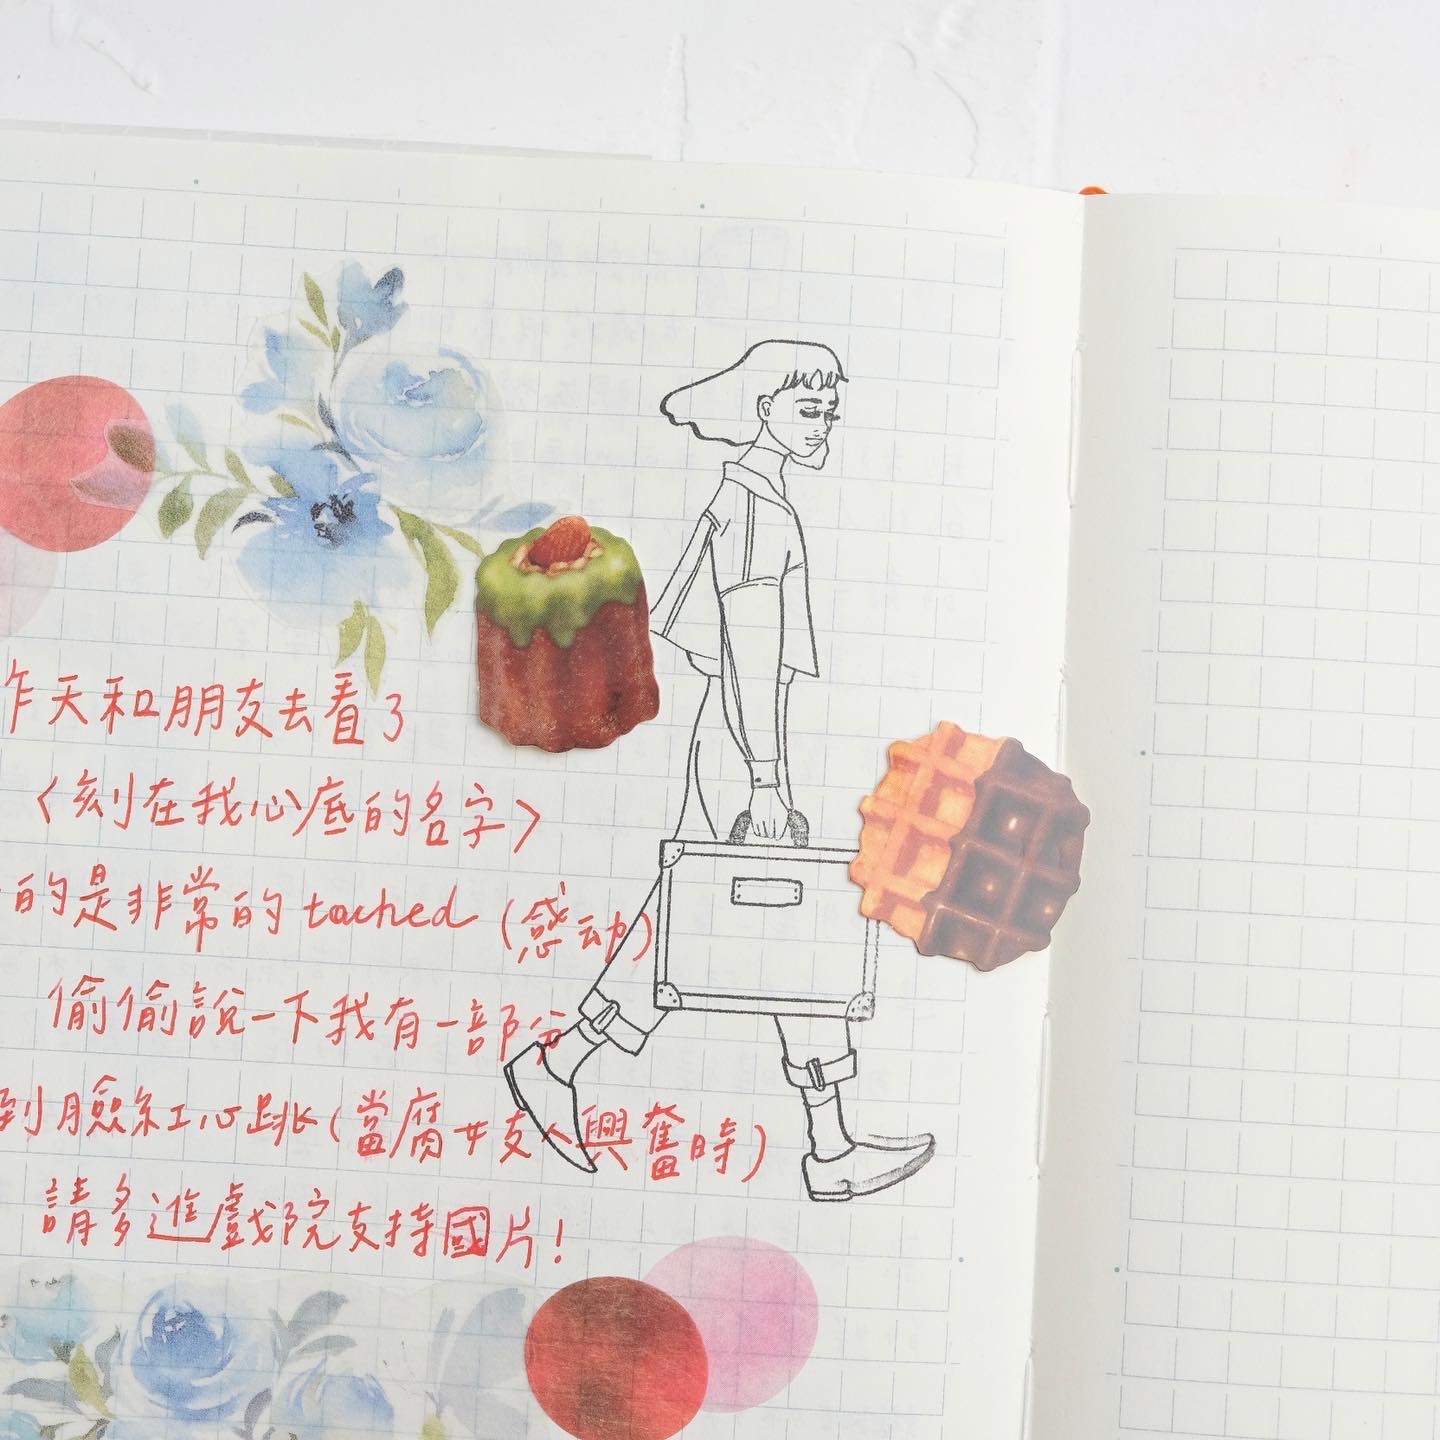 昨天和朋友去看了
〈刻在我心底的名字〉
的是非常的 tached (感动)
偷偷說一下我有一部分
到臉紅心跳(當腐女支人興奮時)
請多進戲院支持國片!